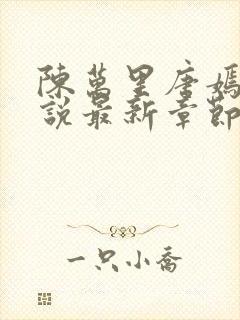 陳萬里唐嫣
說最新章節
一只小喬